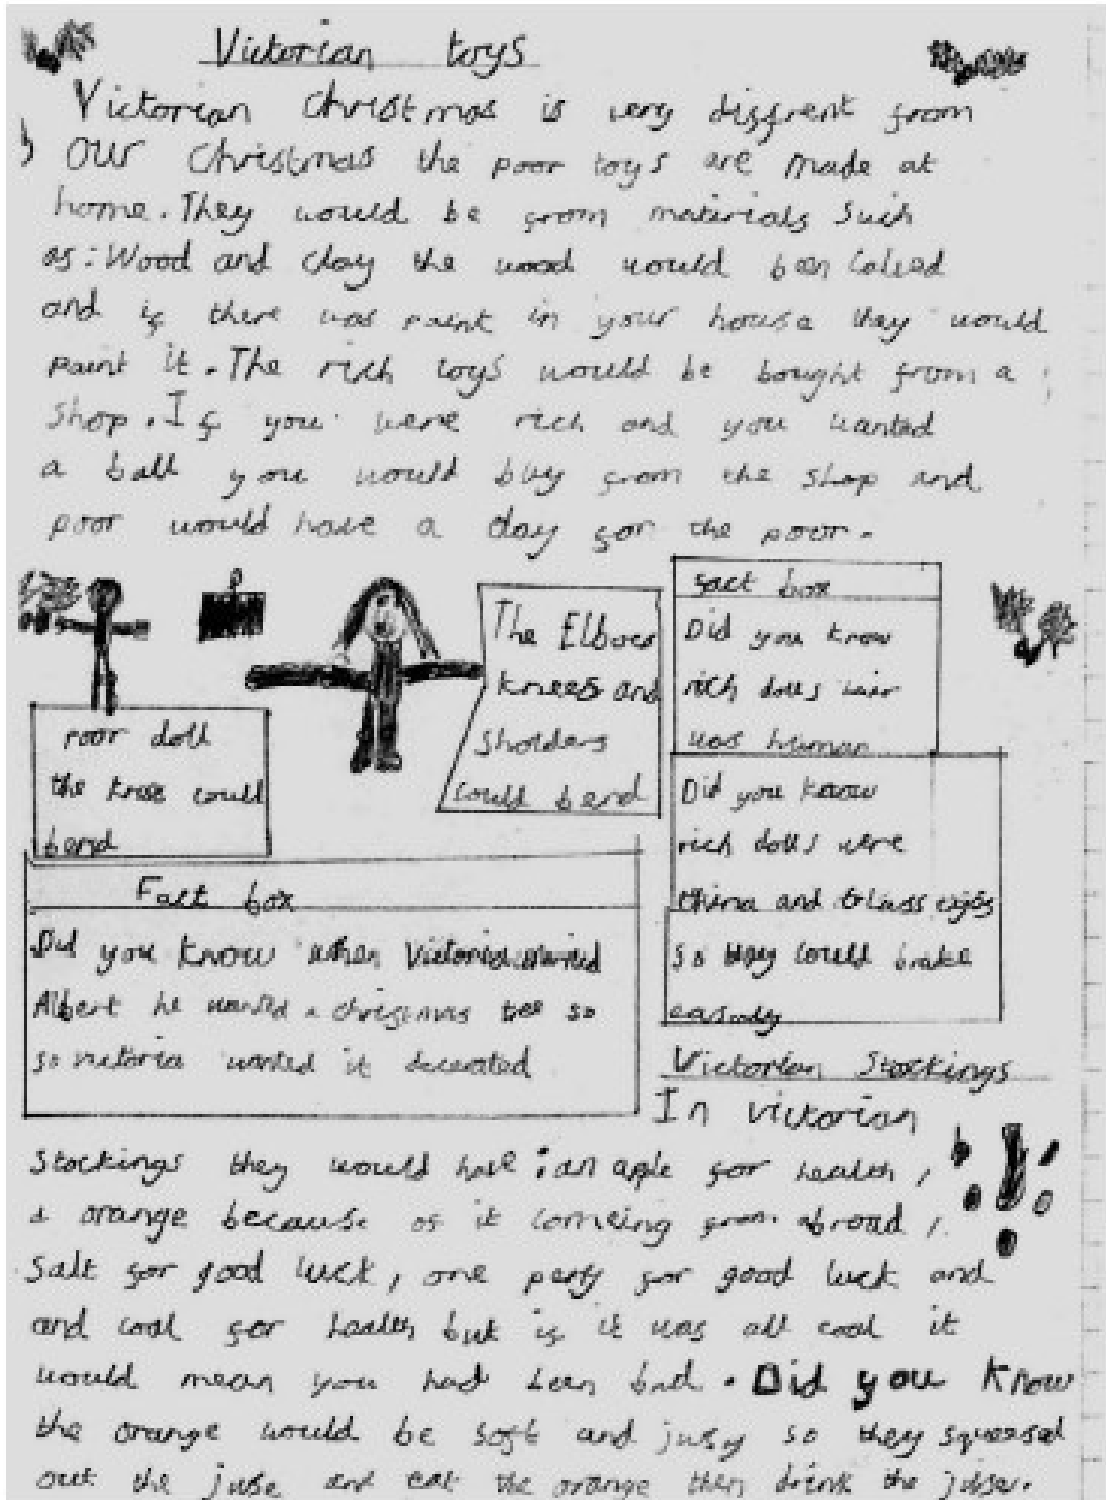 Victorian toys
Victorian christmas is very diffrent from
our christmas the poor toys are made at
home. They would be from materials such
as: Wood and clay the wood would been
and if there was paint in your house they would
paint it. The rich toys would be bought from a
shop. If you were rich and you wanted
a ball you would buy from the shop and
poor would have a clay for the poor.
poor doll
the knee could
bend
The Elbows
knees and
sholders
could bend
fact box
Did you know
rich dolls hair
was human
Did you know
rich dolls were
china and Glass eyes
so they could brake
easialy
Fact box
Did you know when Victoria married
Albert he wanted a christmas tree so
so victoria wanted it decorated
Victorian Stockings
In victorian
stockings they would have : an aple for health,
a orange because of it comeing from abroad,
salt for good luck, one peny for good luck and
and coal for health but if it was all coal it
would mean you had been bad. Did you know
the orange would be soft and jusy so they squeesed
out the juse and eat the orange then drink the juse.